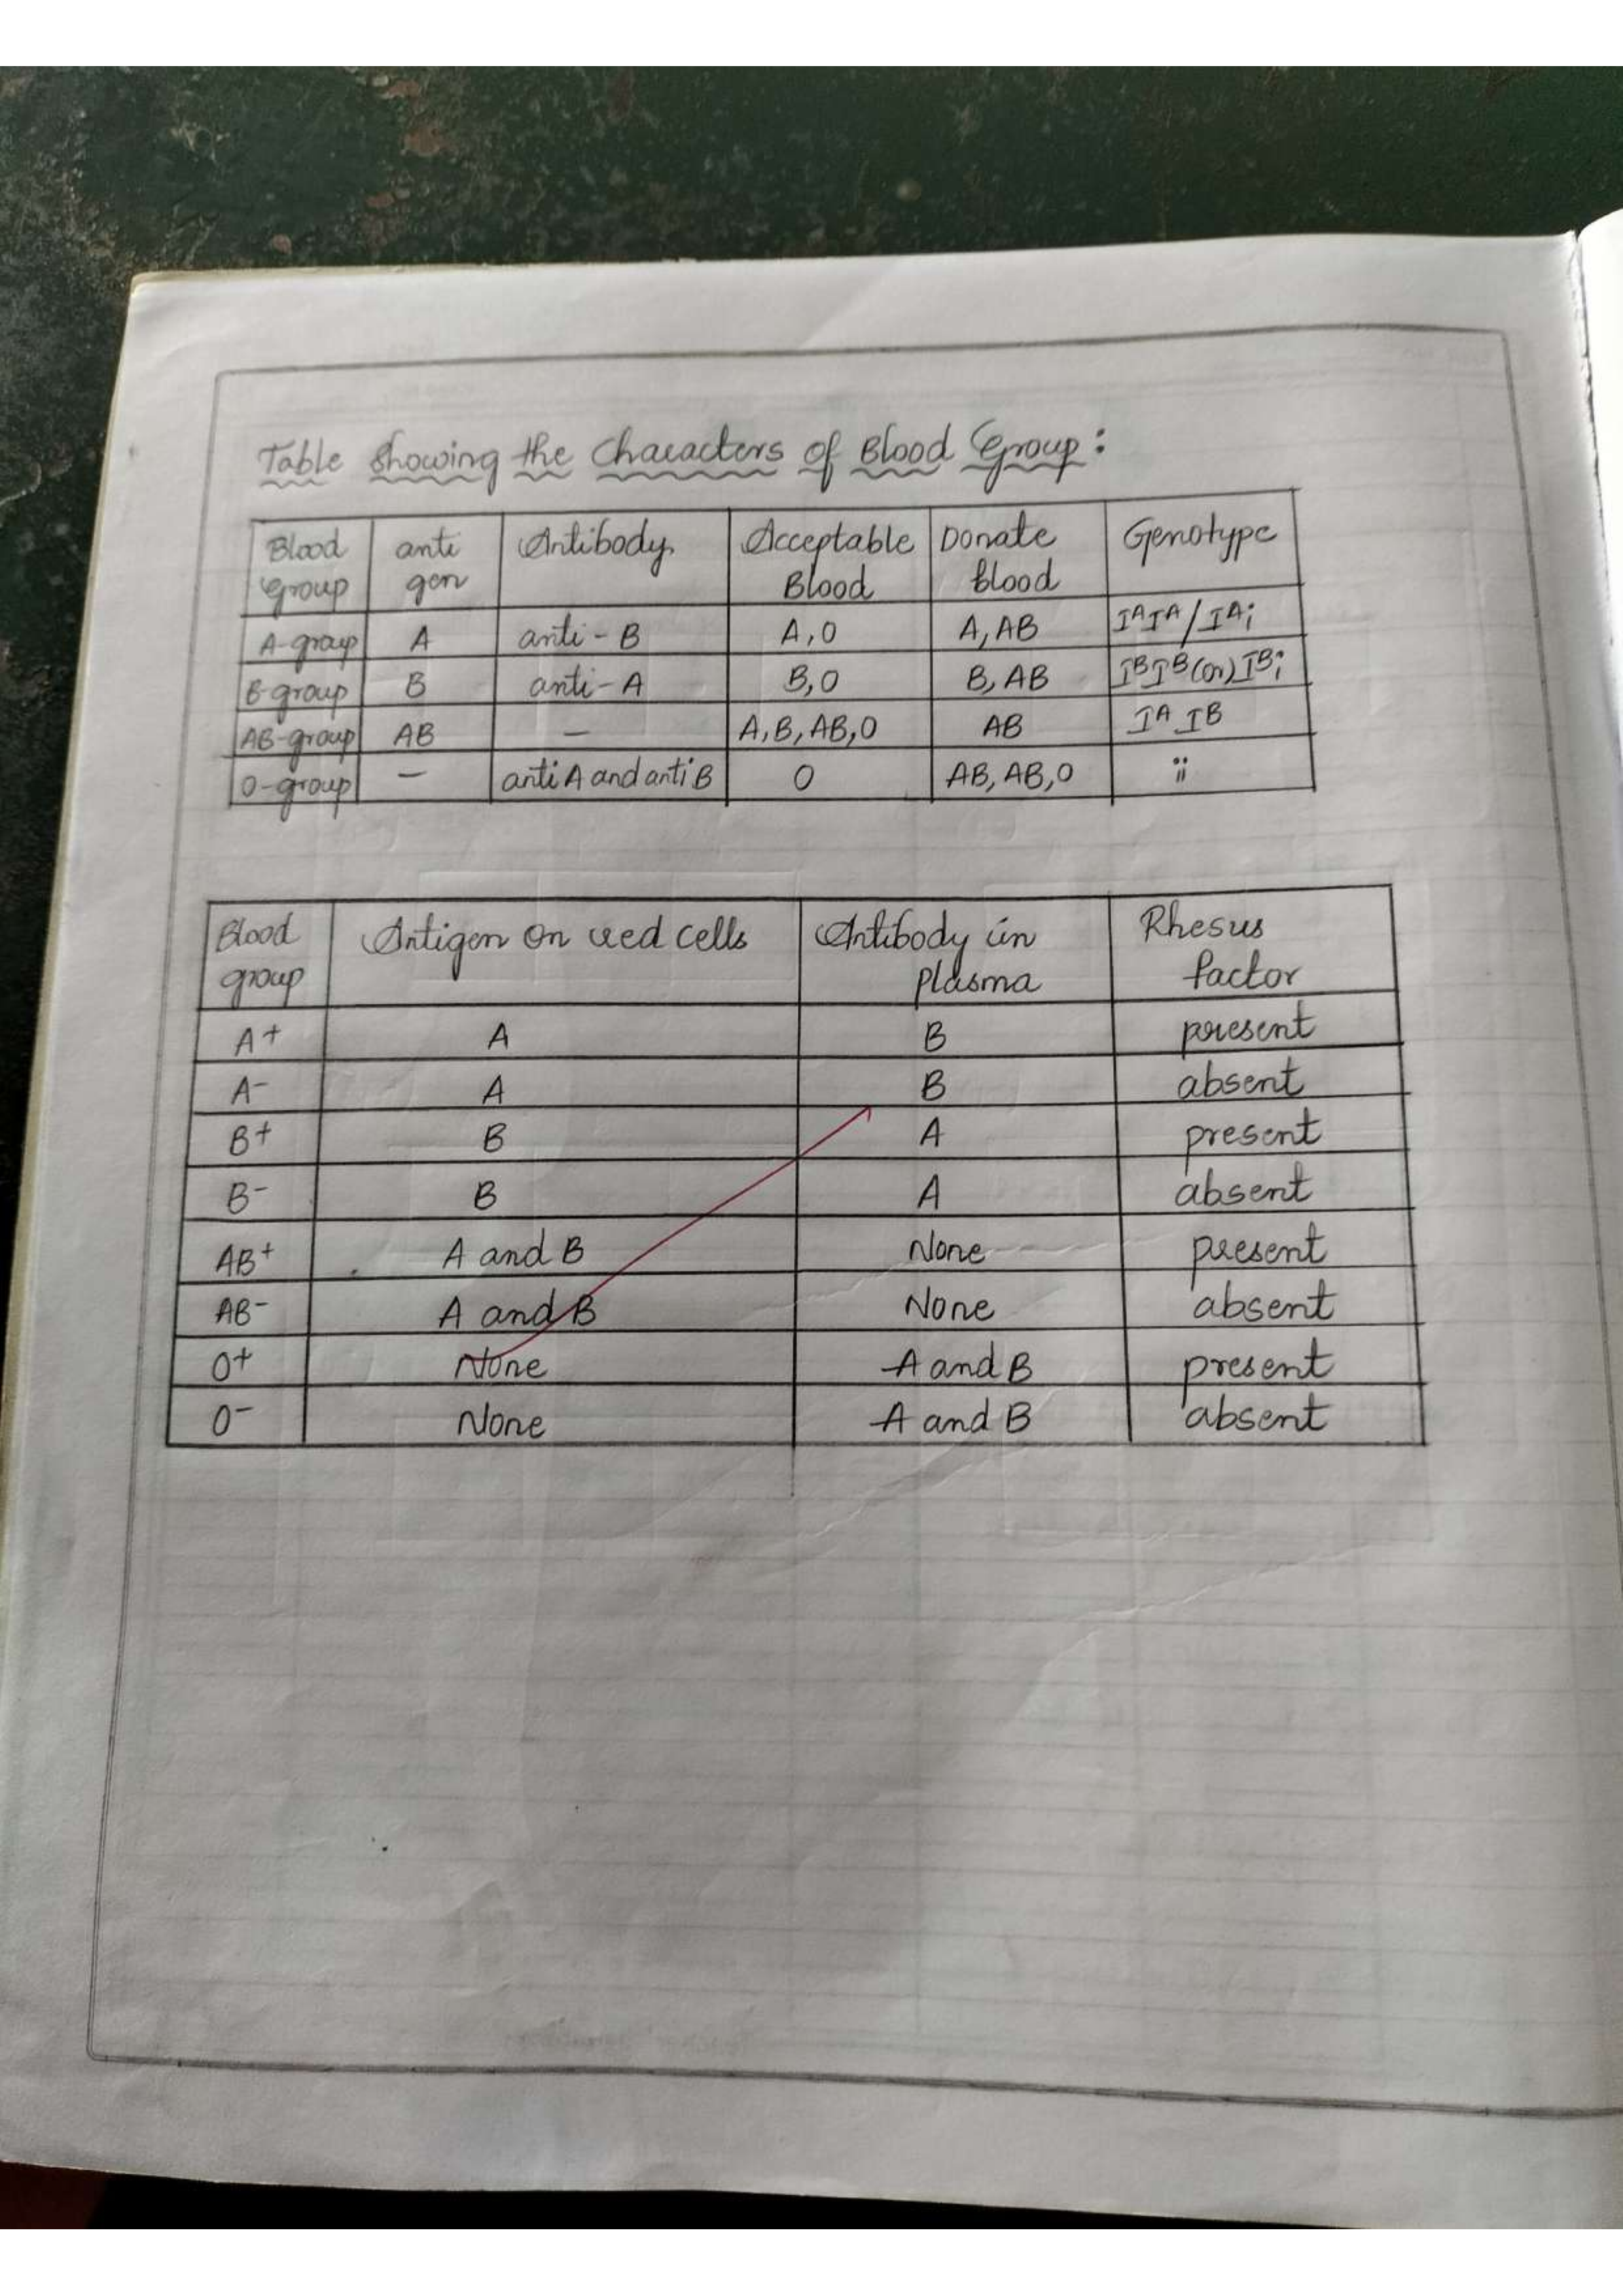 Table showing the Characters of Blood Group:
Blood Group | anti gen | Antibody | Acceptable Blood | Donate blood | Genotype
A-group | A | anti-B | A,O | A,AB | IAIA/IAi
B-group | B | anti-A | B,O | B,AB | IBIB(or)IBi
AB-group | AB | — | A,B,AB,O | AB | IA IB
O-group | — | anti A and anti B | O | AB, AB,O | ii
Blood group | Antigen on red cells | Antibody in plasma | Rhesus factor
A+ | A | B | present
A- | A | B | absent
B+ | B | A | present
B- | B | A | absent
AB+ | A and B | None | present
AB- | A and B | None | absent
O+ | None | A and B | present
O- | None | A and B | absent